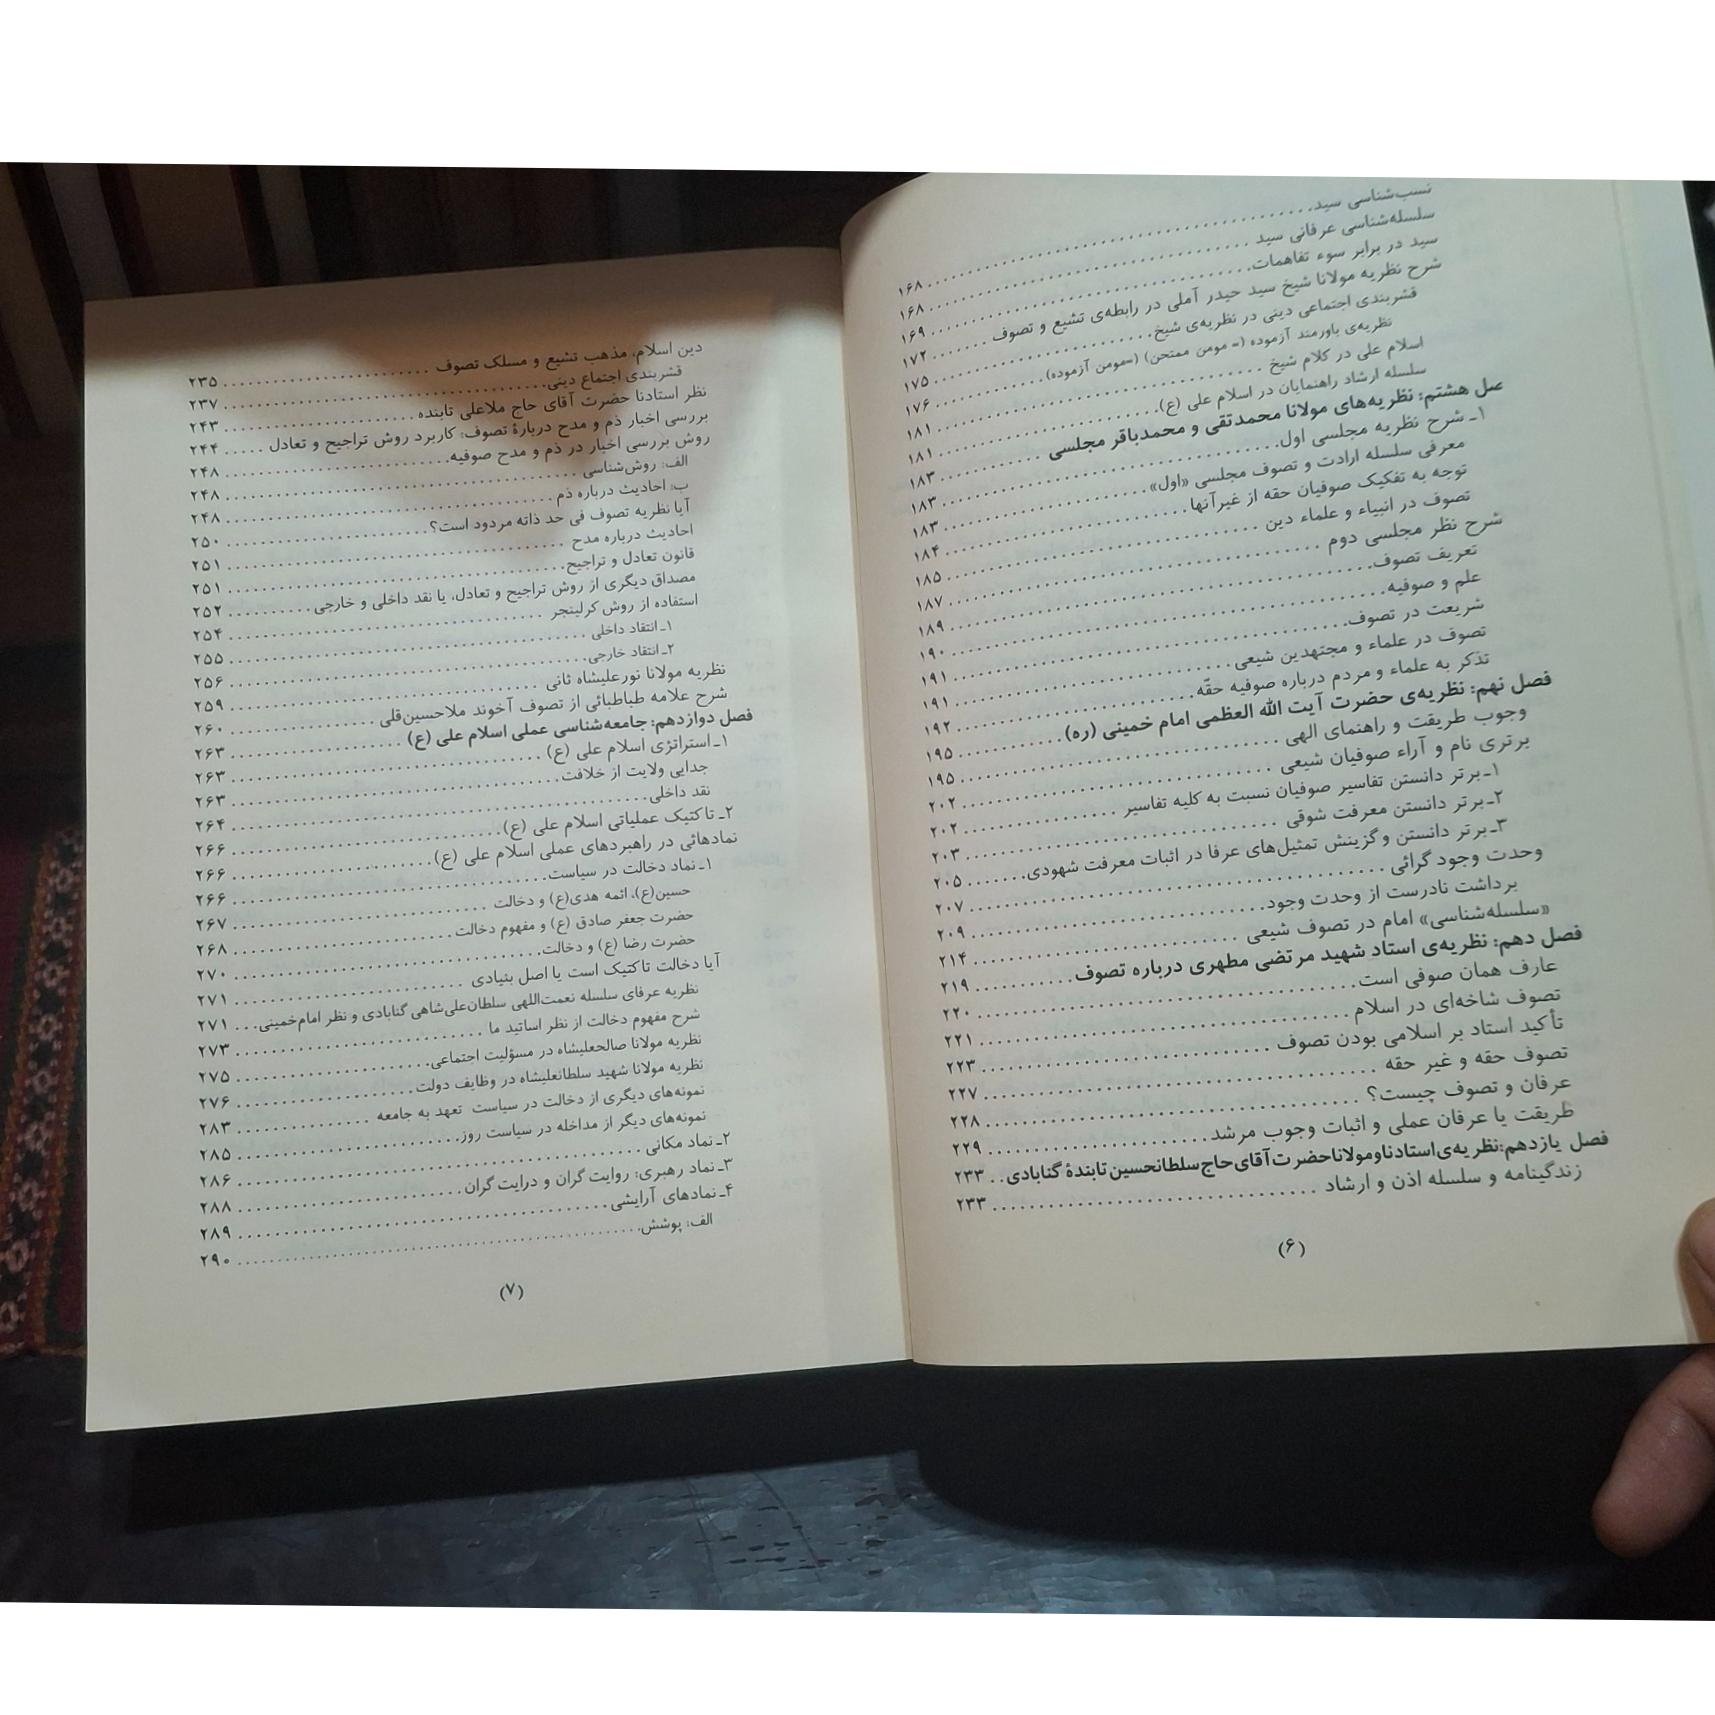 نسب‌شناسی سید ۱۶۸
سلسله‌شناسی عرفانی سید ۱۶۸
سید در برابر سوء تفاهمات ۱۶۹
شرح نظریه مولانا شیخ سید حیدر آملی در رابطه‌ی تشیع و تصوف ۱۷۲
قشربندی اجتماعی دینی در نظریه‌ی شیخ ۱۷۵
نظریه‌ی باورمند آزموده (= مومن ممتحن) (=مومن آزموده) ۱۷۶
اسلام علی در کلام شیخ ۱۸۱
سلسله ارشاد راهنمایان در اسلام علی (ع) ۱۸۱
صل هشتم: نظریه‌های مولانا محمدتقی و محمدباقر مجلسی ۱۸۳
۱ـ شرح نظریه مجلسی اول ۱۸۳
معرفی سلسله ارادت و تصوف مجلسی «اول» ۱۸۳
توجه به تفکیک صوفیان حقه از غیرآنها ۱۸۴
تصوف در انبیاء و علماء دین ۱۸۵
شرح نظر مجلسی دوم ۱۸۷
تعریف تصوف ۱۸۹
علم و صوفیه ۱۹۰
شریعت در تصوف ۱۹۱
تصوف در علماء و مجتهدین شیعی ۱۹۱
تذکر به علماء و مردم درباره صوفیه حقّه ۱۹۲
فصل نهم: نظریه‌ی حضرت آیت الله العظمی امام خمینی (ره) ۱۹۵
وجوب طریقت و راهنمای الهی ۱۹۵
برتری نام و آراء صوفیان شیعی ۲۰۲
۱ـ برتر دانستن تفاسیر صوفیان نسبت به کلیه تفاسیر ۲۰۲
۲ـ برتر دانستن معرفت شوقی ۲۰۳
۳ـ برتر دانستن و گزینش تمثیل‌های عرفا در اثبات معرفت شهودی ۲۰۵
وحدت وجود گرائی ۲۰۷
برداشت نادرست از وحدت وجود ۲۰۹
«سلسله‌شناسی» امام در تصوف شیعی ۲۱۴
فصل دهم: نظریه‌ی استاد شهید مرتضی مطهری درباره تصوف ۲۱۹
عارف همان صوفی است ۲۲۰
تصوف شاخه‌ای در اسلام ۲۲۱
تأکید استاد بر اسلامی بودن تصوف ۲۲۳
تصوف حقه و غیر حقه ۲۲۷
عرفان و تصوف چیست؟ ۲۲۸
طریقت یا عرفان عملی و اثبات وجوب مرشد ۲۲۹
فصل یازدهم: نظریه‌ی استادنا و مولانا حضرت آقای حاج سلطانحسین تابندهٔ گنابادی ۲۳۳
زندگینامه و سلسله اذن و ارشاد ۲۳۳
(۶)
دین اسلام، مذهب تشیع و مسلک تصوف ۲۳۵
قشربندی اجتماع دینی ۲۳۷
نظر استادنا حضرت آقای حاج ملاعلی تابنده ۲۴۳
بررسی اخبار ذم و مدح دربارهٔ تصوف: کاربرد روش تراجیح و تعادل ۲۴۴
روش بررسی اخبار در ذم و مدح صوفیه ۲۴۸
الف: روش‌شناسی ۲۴۸
ب: احادیث درباره ذم ۲۴۸
آیا نظریه تصوف فی حد ذاته مردود است؟ ۲۵۰
احادیث درباره مدح ۲۵۱
قانون تعادل و تراجیح ۲۵۱
مصداق دیگری از روش تراجیح و تعادل، یا نقد داخلی و خارجی ۲۵۲
استفاده از روش کرلینجر ۲۵۴
۱ـ انتقاد داخلی ۲۵۵
۲ـ انتقاد خارجی ۲۵۶
نظریه مولانا نورعلیشاه ثانی ۲۵۹
شرح علامه طباطبائی از تصوف آخوند ملاحسین‌قلی ۲۶۰
فصل دوازدهم: جامعه‌شناسی عملی اسلام علی (ع) ۲۶۳
۱ـ استراتژی اسلام علی (ع) ۲۶۳
جدایی ولایت از خلافت ۲۶۳
نقد داخلی ۲۶۴
۲ـ تاکتیک عملیاتی اسلام علی (ع) ۲۶۶
نمادهائی در راهبردهای عملی اسلام علی (ع) ۲۶۶
۱ـ نماد دخالت در سیاست ۲۶۶
حسین(ع)، ائمه هدی(ع) و دخالت ۲۶۷
حضرت جعفر صادق (ع) و مفهوم دخالت ۲۶۸
حضرت رضا (ع) و دخالت ۲۷۰
آیا دخالت تاکتیک است یا اصل بنیادی ۲۷۱
نظریه عرفای سلسله نعمت‌اللهی سلطان‌علی‌شاهی گنابادی و نظر امام‌خمینی ۲۷۱
شرح مفهوم دخالت از نظر اساتید ما ۲۷۳
نظریه مولانا صالحعلیشاه در مسؤلیت اجتماعی ۲۷۵
نظریه مولانا شهید سلطانعلیشاه در وظایف دولت ۲۷۶
نمونه‌های دیگری از دخالت در سیاست تعهد به جامعه ۲۸۳
نمونه‌های دیگر از مداخله در سیاست روز ۲۸۵
۲ـ نماد مکانی ۲۸۶
۳ـ نماد رهبری: روایت گران و درایت گران ۲۸۸
۴ـ نمادهای آرایشی ۲۸۹
الف: پوشش ۲۹۰
(۷)